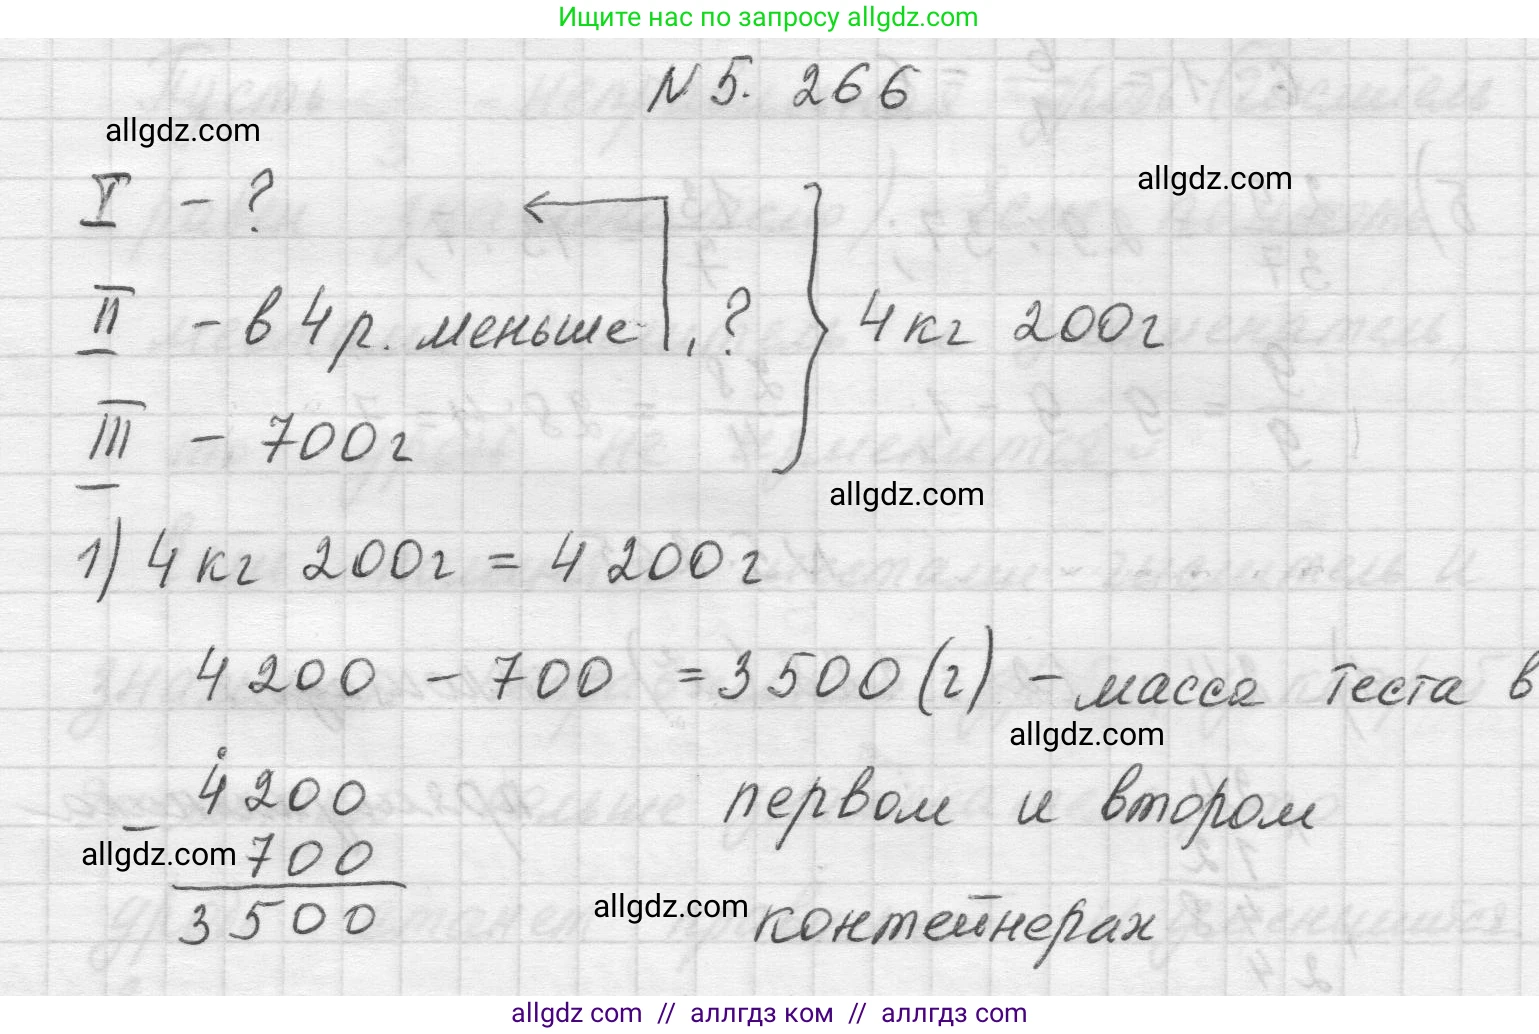 Ищите нас по запросу allgdz.com
N 5. 266
allgdz.com
allgdz.com
I - ?
II - в 4 р. меньше, ? 4 кг 200г
III - 700г
allgdz.com
1) 4 кг 200г = 4 200г
4 200 - 700 = 3 500 (г) - масса теста в
allgdz.com
4200 первом и втором
- 700
allgdz.com
allgdz.com
3500 контейнерах
allgdz com // аллгдз ком // аллгдз com